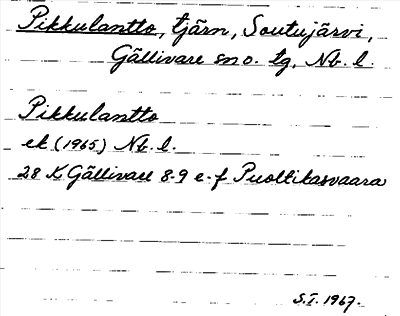 Pikkulantto, tjärn, Soutujärvi,
Gällivare sn o. tg, Nb. l.
Pikkulantto
ek (1965) Nb. l.
28 K Gällivare 8-9 e-f Puoltikasvaara
S.I. 1967.